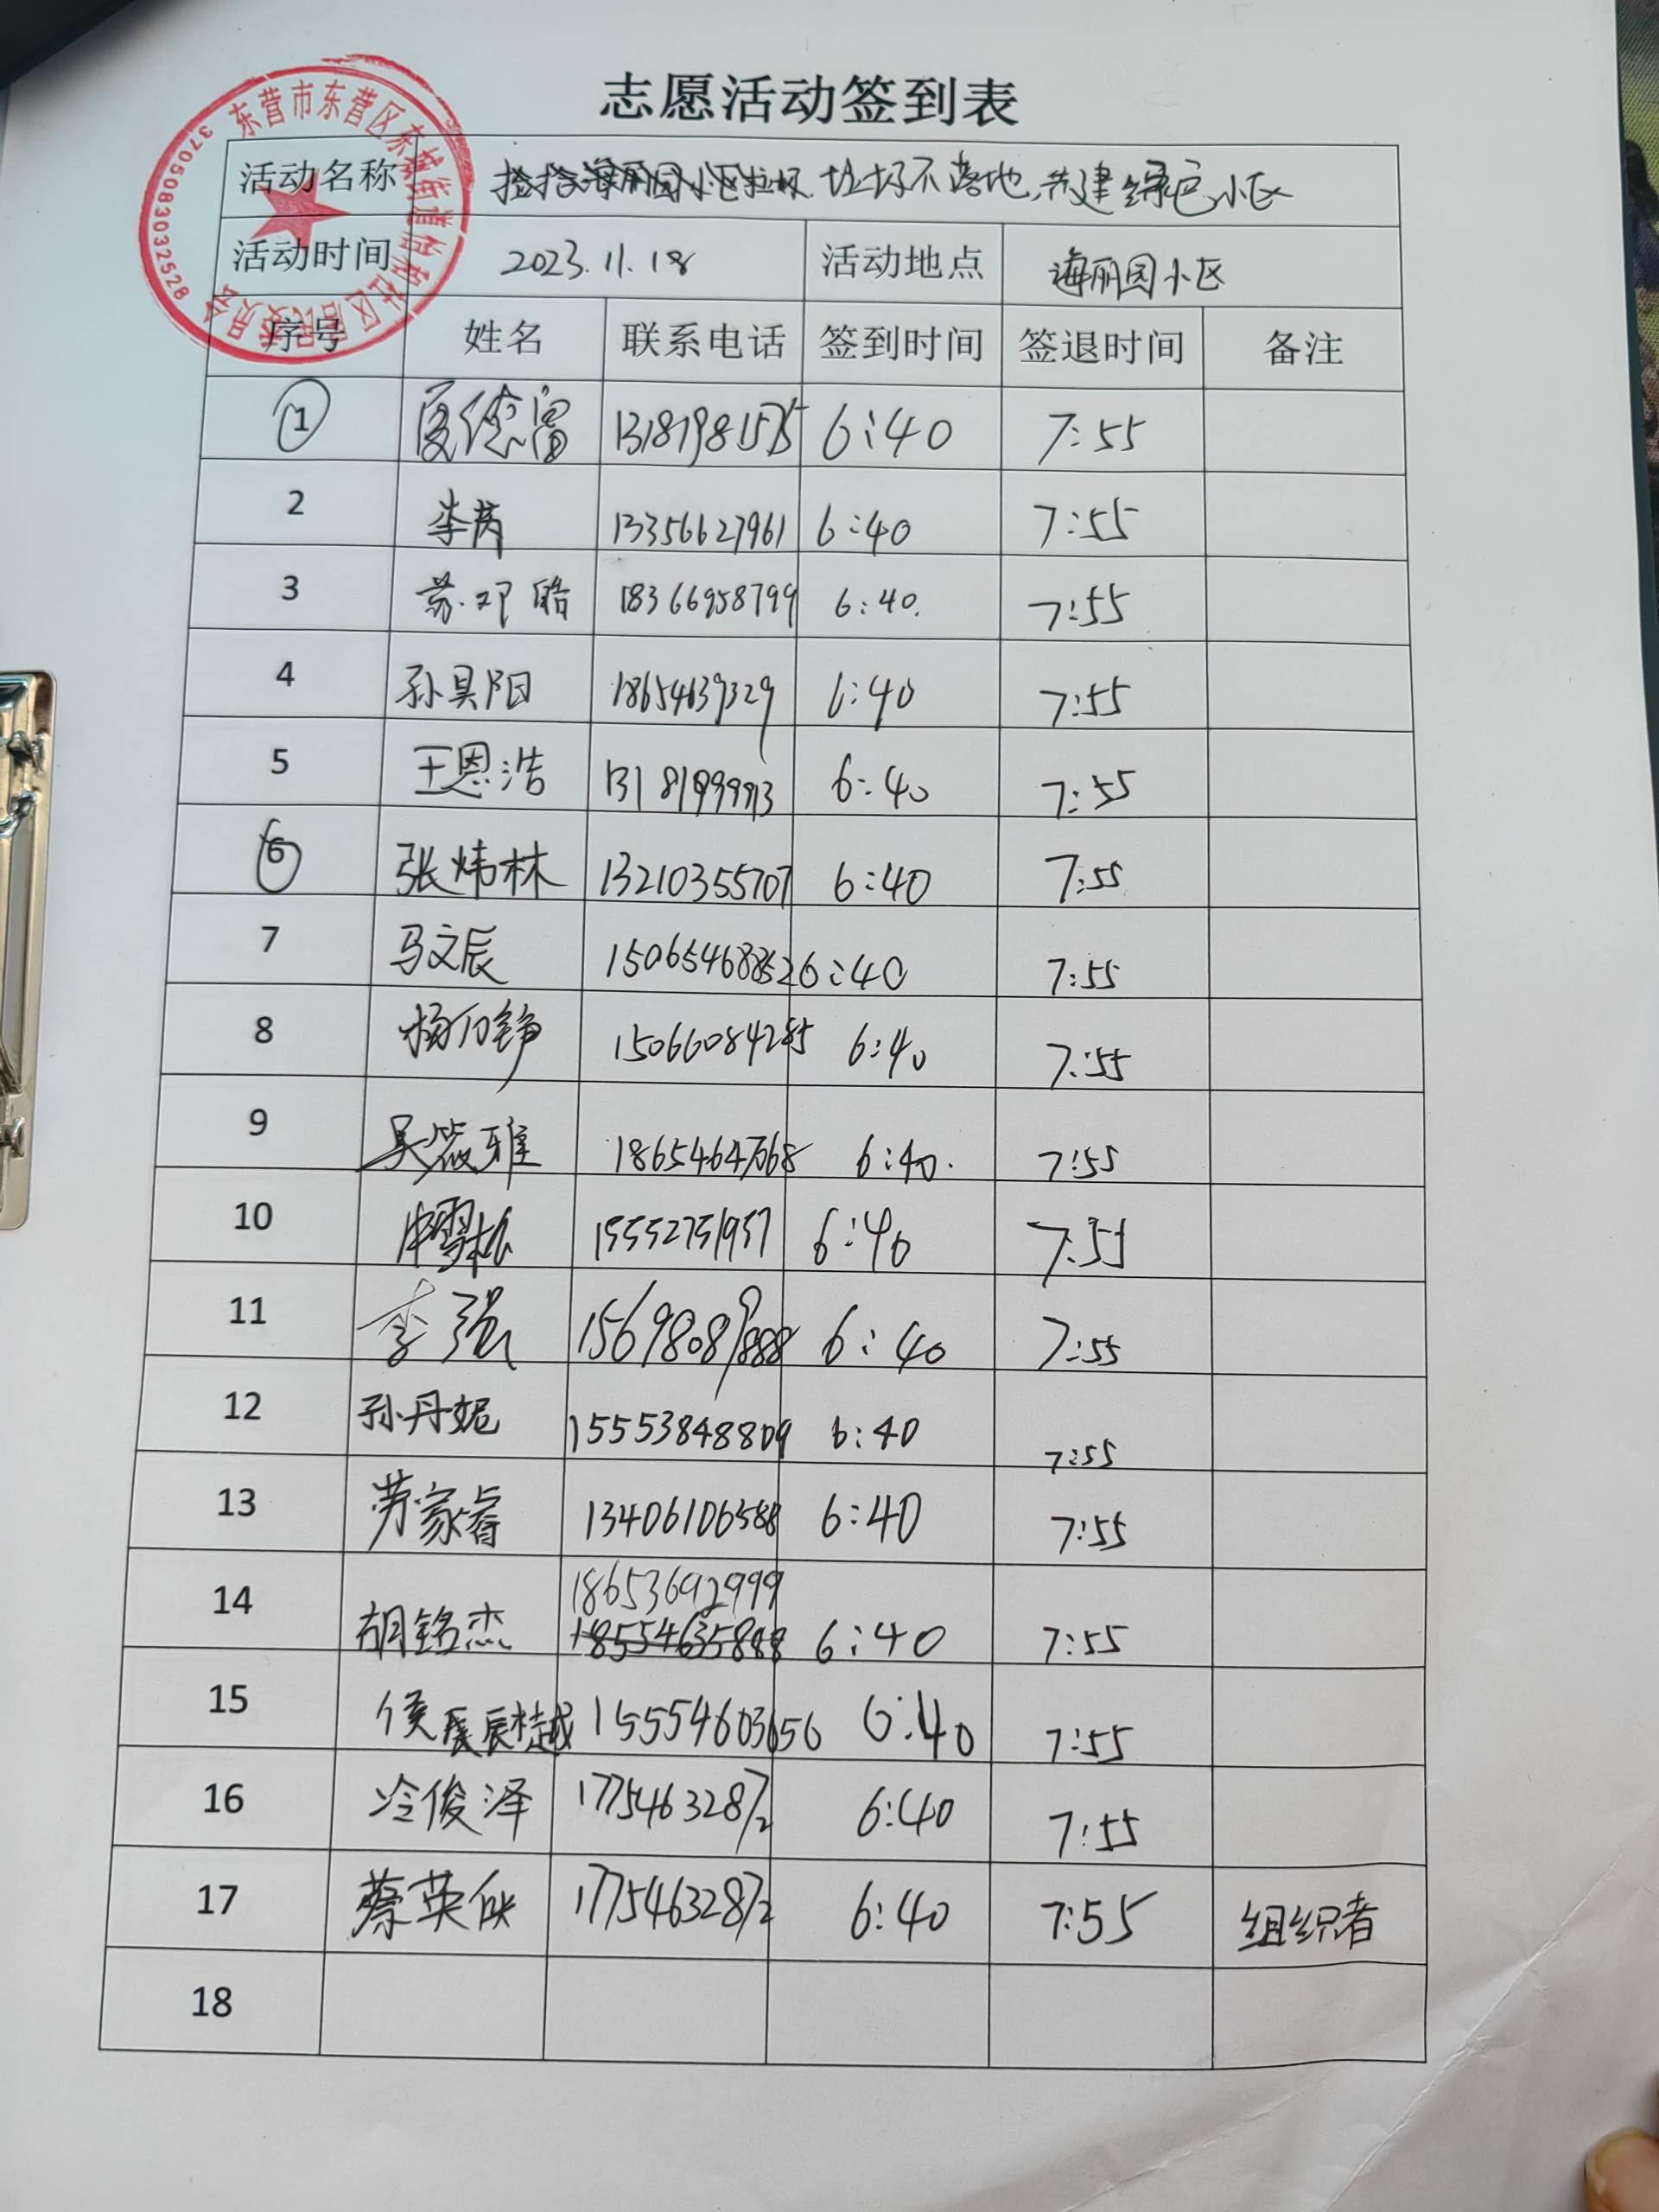 志愿活动签到表
东营市东营区东城街道怡和社区居民委员会
3705083032528
活动名称 捡拾海丽园小区垃圾 垃圾不落地,共建绿色小区
活动时间 2023.11.18 活动地点 海丽园小区
序号 姓名 联系电话 签到时间 签退时间 备注
1 夏德富 13181981575 6:40 7:55
2 李芮 13356627961 6:40 7:55
3 苏邓皓 18366958799 6:40. 7:55
4 孙昊阳 18654639329 6:40 7:55
5 王恩浩 13181999913 6:40 7:55
6 张炜林 13210355707 6:40 7:55
7 马文辰 15065468852 6:40 7:55
8 杨万铮 15066084285 6:40 7:55
9 吴筱雅 18654647068 6:40. 7:55
10 15552751957 6:40 7:55
11 李强 15698089888 6:40 7:55
12 孙丹妮 15553848809 6:40 7:55
13 劳家睿 13406106588 6:40 7:55
14 胡铭杰 18653692999 6:40 7:55
18554635888
15 侯辰越 15554603656 6:40 7:55
16 冷俊泽 17754632872 6:40 7:55
17 蔡英俠 17754632872 6:40 7:55 组织者
18